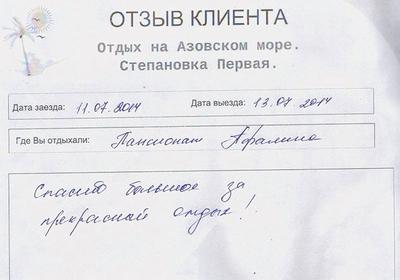 ОТЗЫВ КЛИЕНТА
Отдых на Азовском море.
Степановка Первая.
Дата заезда: 11.07.2014 Дата выезда: 13.07 2014
Где Вы отдыхали: Пансионат Афалина
Спасибо большое за
прекрасный отдых!